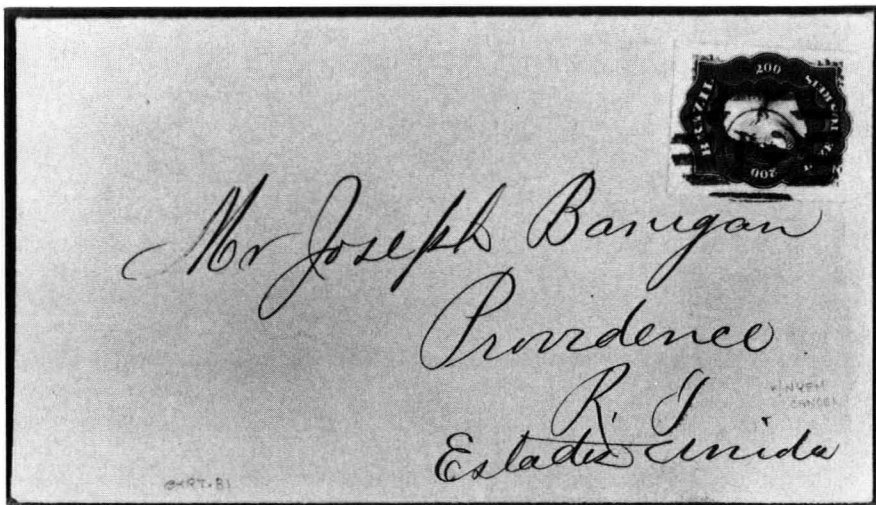 200
BRAZIL
200
Mr Joseph Banigan
Providence
R. I
Estados Unida
CANCEL